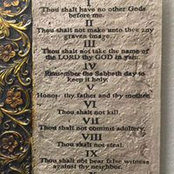 I
Thou shalt have no other Gods
before me.
II
Thou shalt not make unto thee any
graven image.
III
Thou shalt not take the name of
the LORD thy GOD in vain.
IV
Remember the Sabbath day to
keep it holy.
V
Honor thy father and thy mother.
VI
Thou shalt not kill.
VII
Thou shalt not commit adultery.
VIII
Thou shalt not steal.
IX
Thou shalt not bear false witness
against thy neighbor.